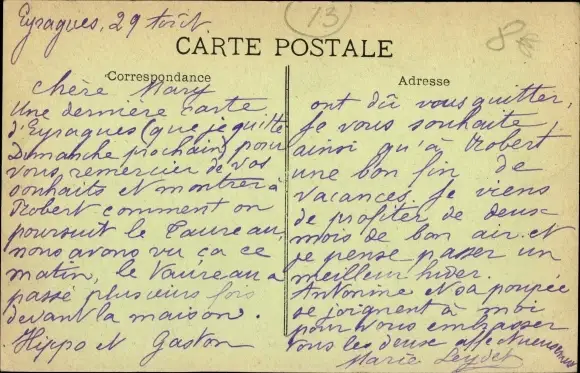 Eyragues, 29 Août
13
8
CARTE POSTALE
Correspondance
Chère Mary
Une dernière carte
d'Eyragues (que je quitte
Dimanche prochain) pour
vous remercier de vos
souhaits et montrer à
Robert comment on
poursuit le Taureau,
nous avons vu ça ce
matin, le Taureau a
passé plusieurs fois
devant la maison.
Hippo et Gaston
Adresse
ont dû vous quitter,
Je vous souhaite,
ainsi qu'à Robert
une bon fin de
vacances, Je viens
de profiter de deux
mois de bon air et
je pense passer un
meilleur hiver.
Antonine et sa poupée
se joignent à moi
pour vous embrasser
tous les deux affectueusement
Marie Leydet